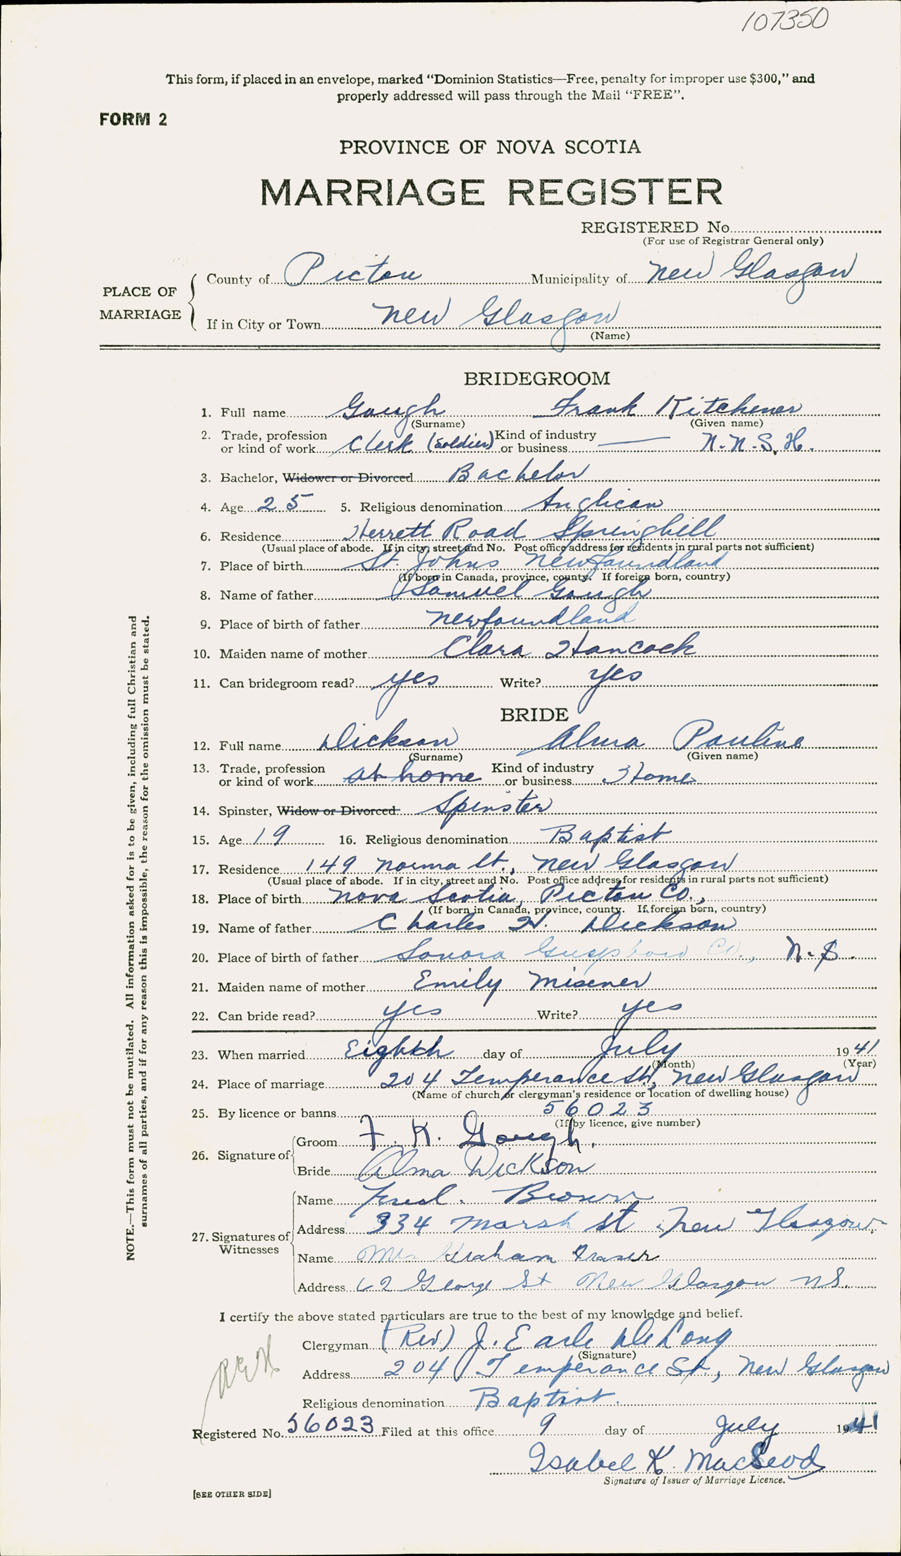 107350
This form, if placed in an envelope, marked "Dominion Statistics—Free, penalty for improper use $300," and
properly addressed will pass through the Mail "FREE".
FORM 2
PROVINCE OF NOVA SCOTIA
MARRIAGE REGISTER
REGISTERED No.
(For use of Registrar General only)
PLACE OF MARRIAGE
County of Pictou Municipality of New Glasgow
If in City or Town New Glasgow
(Name)
BRIDEGROOM
1. Full name Gough Frank Kitchener
(Surname) (Given name)
2. Trade, profession or kind of work Clerk (Soldier) Kind of industry or business — N.N.S.H.
3. Bachelor, Widower or Divorced Bachelor
4. Age 25 5. Religious denomination Anglican
6. Residence Herrett Road Springhill
(Usual place of abode. If in city, street and No. Post office address for residents in rural parts not sufficient)
7. Place of birth St. Johns Newfoundland
(If born in Canada, province, county. If foreign born, country)
8. Name of father Samuel Gough
9. Place of birth of father Newfoundland
10. Maiden name of mother Clara Hancock
11. Can bridegroom read? yes Write? yes
BRIDE
12. Full name Dickson Alma Pauline
(Surname) (Given name)
13. Trade, profession or kind of work at home Kind of industry or business Home
14. Spinster, Widow or Divorced Spinster
15. Age 19 16. Religious denomination Baptist
17. Residence 149 Norma St., New Glasgow
(Usual place of abode. If in city, street and No. Post office address for residents in rural parts not sufficient)
18. Place of birth Nova Scotia, Pictou Co.,
(If born in Canada, province, county. If foreign born, country)
19. Name of father Charles H. Dickson
20. Place of birth of father Sonora Guysboro Co., N.S.
21. Maiden name of mother Emily Misener
22. Can bride read? yes Write? yes
23. When married Eighth day of July 1941
(Month) (Year)
24. Place of marriage 204 Temperance St., New Glasgow
(Name of church or clergyman's residence or location of dwelling house)
25. By licence or banns 56023
(If by licence, give number)
26. Signature of
Groom F. K. Gough.
Bride Alma Dickson
27. Signatures of Witnesses
Name Fred. Brown
Address 334 Marsh St New Glasgow
Name Mrs Graham Fraser
Address 62 George St New Glasgow NS.
I certify the above stated particulars are true to the best of my knowledge and belief.
Clergyman (Rev) J. Earle DeLong
(Signature)
Address 204 Temperance St., New Glasgow
Religious denomination Baptist.
Registered No. 56023 Filed at this office 9 day of July 1941
Isabel K. MacLeod
Signature of Issuer of Marriage Licence.
[SEE OTHER SIDE]
NOTE.—This form must not be mutilated. All information asked for is to be given, including full Christian and
surnames of all parties, and if for any reason this is impossible, the reason for the omission must be stated.